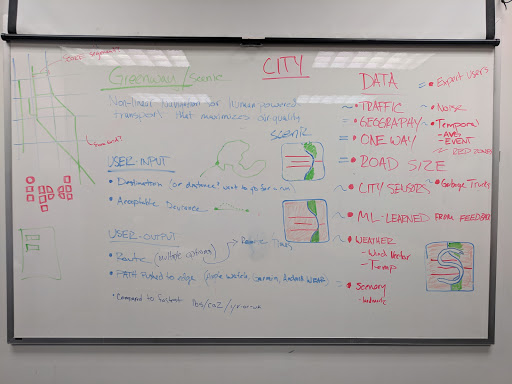 CITY
Greenways/Scenic
Non-linear navigation for human powered
transport that maximizes air quality
Scenic
USER-INPUT
• Destination (or distance? want to go for a run)
• Acceptable Deviance
USER-OUTPUT
• Route (multiple options)
• PATH Pushed to edge (Apple Watch, Garmin, Android Wear)
• Compared to fastest
DATA
~ • TRAFFIC
= • GEOGRAPHY
= • ONE WAY
= • ROAD SIZE
~ • CITY SENSORS
~ • ML-LEARNED FROM FEEDBACK
~ • WEATHER
- Wind Vector
- Temp
• Scenery
= • Expert Users
~ • Noise
• Temporal
- AVG
- EVENT
~ RED ZONES
• Garbage Trucks